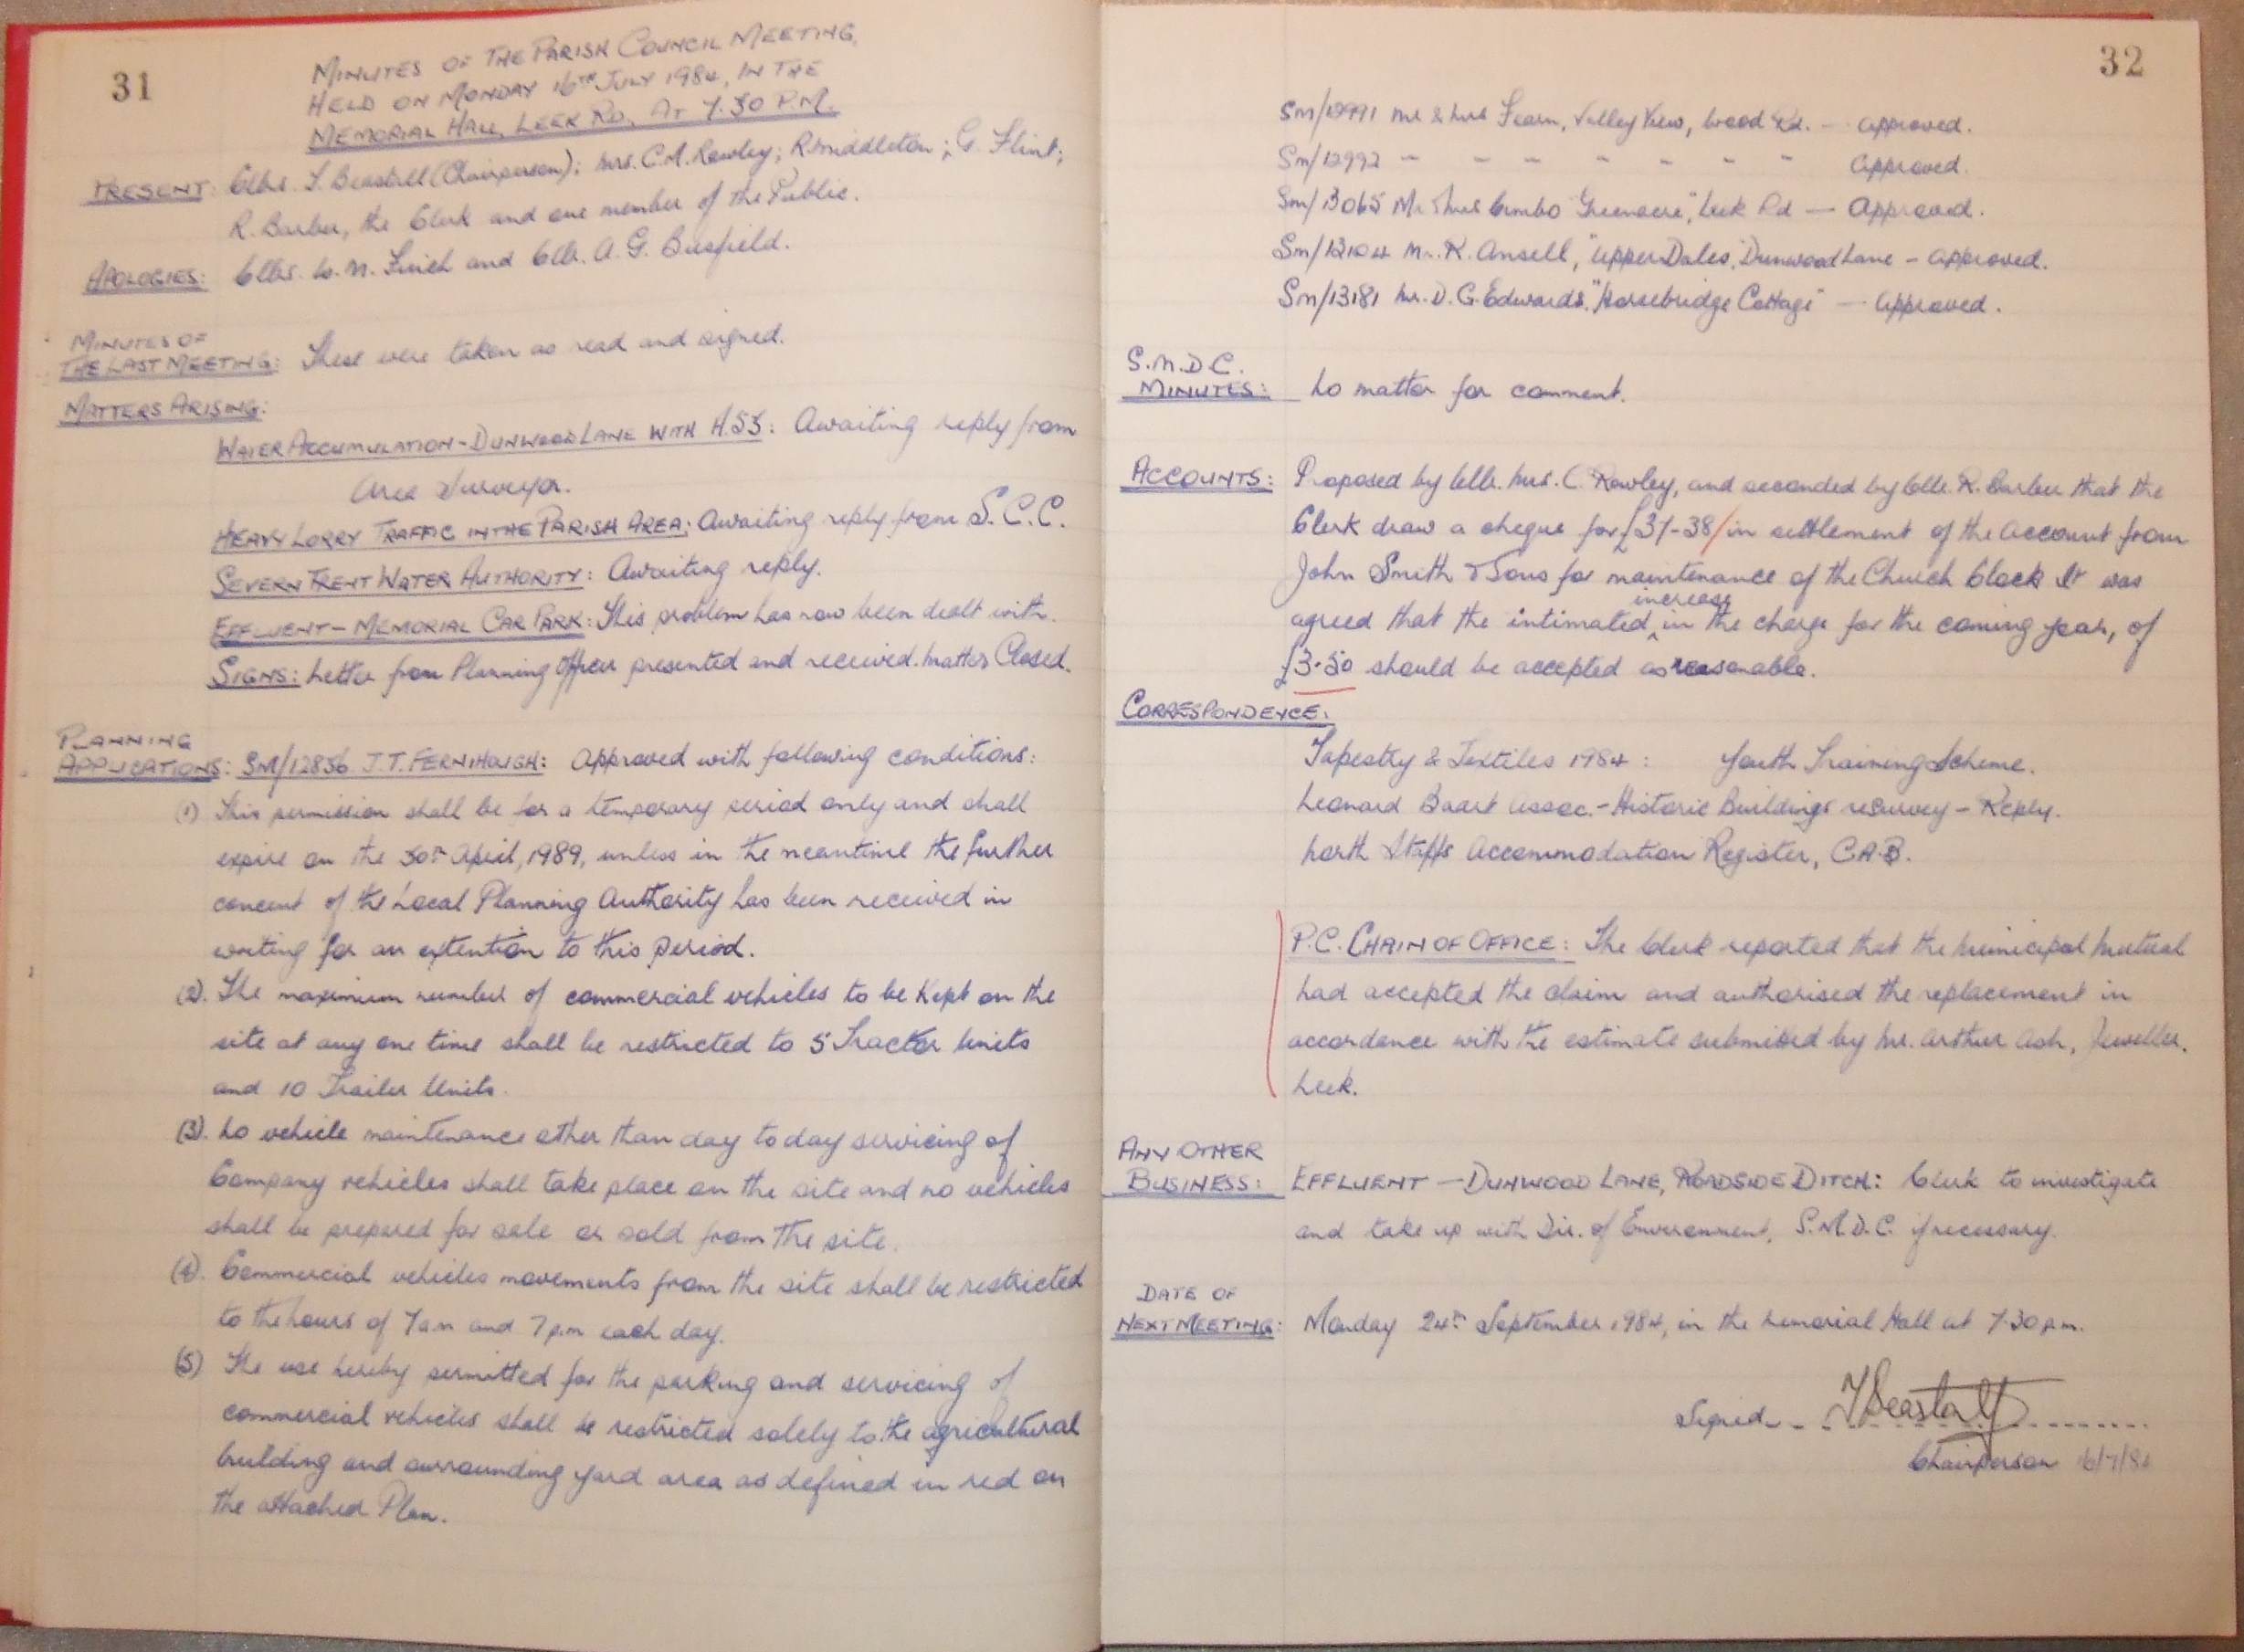 31
MINUTES OF THE PARISH COUNCIL MEETING,
HELD ON MONDAY 16TH JULY 1984, IN THE
MEMORIAL HALL, LEEK RD, AT 7.30 P.M.
PRESENT: Cllrs. Beastall (Chairperson); Mrs. C.M. Rowley; R. Middleton; G. Flint;
R. Barber, the Clerk and one member of the Public.
APOLOGIES: Cllrs. W. N. Finch and Cllr. A. G. Busfield.
MINUTES OF
THE LAST MEETING: These were taken as read and signed.
MATTERS ARISING:
WATER ACCUMULATION - DUNWOOD LANE WITH A.53: Awaiting reply from
Area Surveyor.
HEAVY LORRY TRAFFIC IN THE PARISH AREA: Awaiting reply from S.C.C.
SEVERN TRENT WATER AUTHORITY: Awaiting reply.
EFFLUENT - MEMORIAL CAR PARK: This problem has now been dealt with.
SIGNS: Letter from Planning Officer presented and received. Matter Closed.
PLANNING
APPLICATIONS: SM/12856 J.T. FERNIHOUGH: Approved with following conditions:
(1) This permission shall be for a temporary period only and shall
expire on the 30th April, 1989, unless in the meantime the further
concent of the Local Planning Authority has been received in
writing for an extention to this period.
(2). The maximum number of commercial vehicles to be kept on the
site at any one time shall be restricted to 5 Tractor Units
and 10 Trailer Units.
(3). No vehicle maintenance other than day to day servicing of
Company vehicles shall take place on the site and no vehicles
shall be prepared for sale or sold from the site.
(4). Commercial vehicles movements from the site shall be restricted
to the hours of 7am and 7pm each day.
(5) The use hereby permitted for the parking and servicing of
commercial vehicles shall be restricted solely to the agricultural
building and surrounding yard area as defined in red on
the attached Plan.
32
SM/12991 Mr & Mrs Fearn, Valley View, Wood Rd. - Approved.
SM/12992 - - - - - - - Approved.
SM/13065 Mr & Mrs "Greenacre", Leek Rd - Approved.
Mr. K. Ansell, "Upper Dales", Dunwood Lane - Approved.
SM/13181 Mr. D. G. Edwards. "Horsebridge Cottage" - Approved.
S.M.D.C.
MINUTES: No matter for comment.
ACCOUNTS: Proposed by Cllr. Mrs. C. Rowley, and seconded by Cllr. R. Barber that the
Clerk draw a cheque for £31-38/in settlement of the Account from
John Smith & Sons for maintenance of the Church Clock It was
agreed that the intimated increase in the charge for the coming year, of
£3.50 should be accepted as reasonable.
CORRESPONDENCE:
Tapestry & Textiles 1984: Youth Training Scheme.
Leonard Assoc. - Historic Buildings resurvey - Reply.
North Staffs Accommodation Register, C.A.B.
P.C. CHAIN OF OFFICE: The Clerk reported that the Municipal Mutual
had accepted the claim and authorised the replacement in
accordance with the estimate submitted by Mr. Arthur Ash, Jeweller,
Leek.
ANY OTHER
BUSINESS: EFFLUENT - DUNWOOD LANE, ROADSIDE DITCH: Clerk to investigate
and take up with Dir. of Environment, S.M.D.C. if necessary.
DATE OF
NEXT MEETING: Monday 24th September 1984, in the Memorial Hall at 7.30 p.m.
Signed
Chairperson